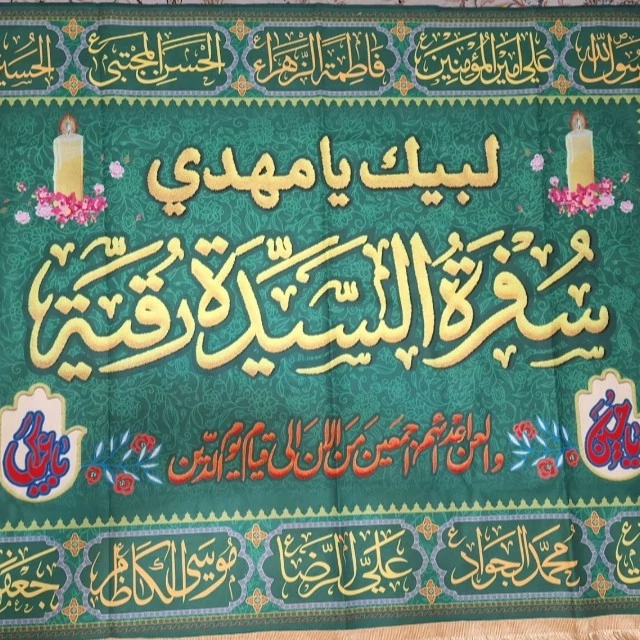 رسول الله ص علي امير المؤمنين ع فاطمة الزهراء ع الحسن المجتبى ع الحسين
لبيك يا مهدي
سُفرَةُ السَّيِّدَة رُقيَّة
يا حسين
يا عباس
والعن اعدائهم اجمعين من الان الى قيام يوم الدين
محمد الجواد ع علي الرضا ع موسى الكاظم ع جعفر